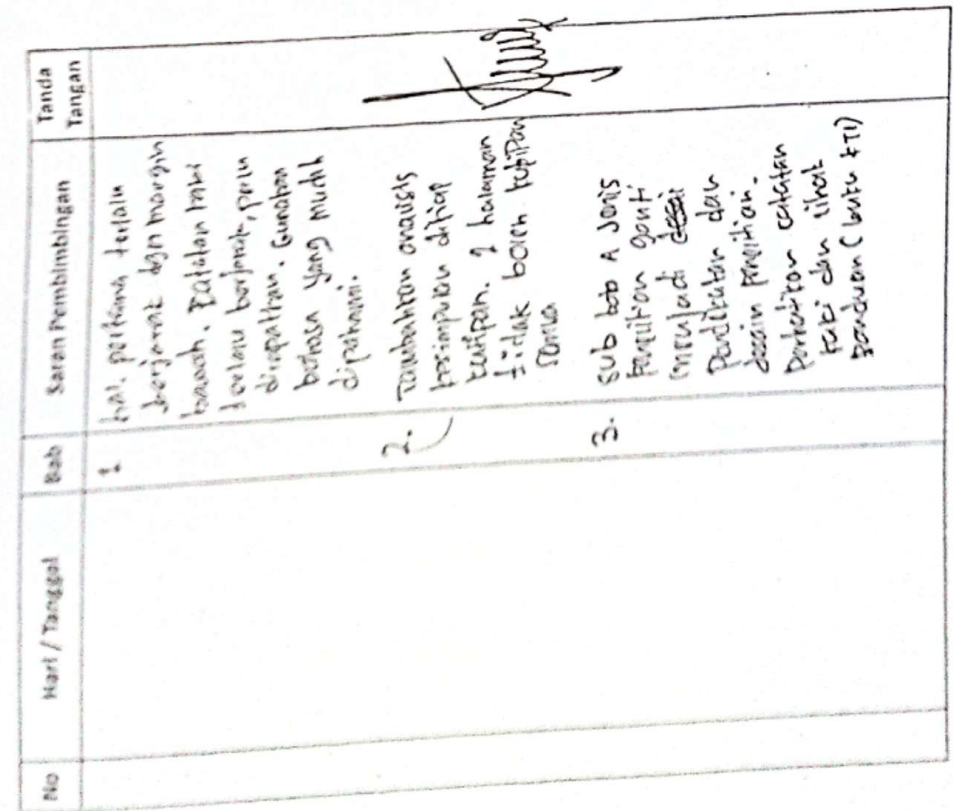 No
Hari / Tanggal
Bab
Saran Pembimbingan
Tanda
Tangan
1
hal. pertama terlalu
berjarak dgn margin
bawah. Catatan kaki
terlalu berjarak, perlu
dirapatkan. Gunakan
bahasa yang mudah
dipahami.
2.
Tambahkan analisis
kesimpulan ditiap
kutipan. 1 halaman
tidak boleh kutipan
semua
3.
Sub bab A Jenis
Penelitian ganti
menjadi
Pendekatan dan
desain penelitian.
Perhatikan catatan
kaki dan lihat
panduan (buku KTI)